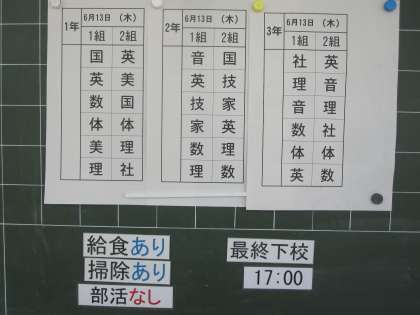 1年 6月13日 (木)
1組 2組
国 英
英 美
数 国
体 体
美 理
理 社
2年 6月13日 (木)
1組 2組
音 国
英 技
技 家
家 英
数 理
理 数
3年 6月13日 (木)
1組 2組
社 英
理 音
音 理
数 社
体 体
英 数
給食あり
掃除あり
部活なし
最終下校
17:00